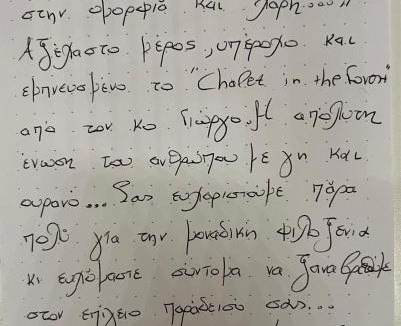 στην ομορφιά και χάρη σου!!
Αξέχαστο μέρος, υπέροχο και
εμπνευσμένο το "Chalet in the forest"
από τον κο Γιώργο. Η απόλυτη
ένωση του ανθρώπου με γη και
ουρανο... Σας ευχαριστούμε πάρα
πολύ για την μοναδική φιλοξενια
κι ευχόμαστε σύντομα να ξαναβρεθούμε
στον επίγειο παράδεισό σας...